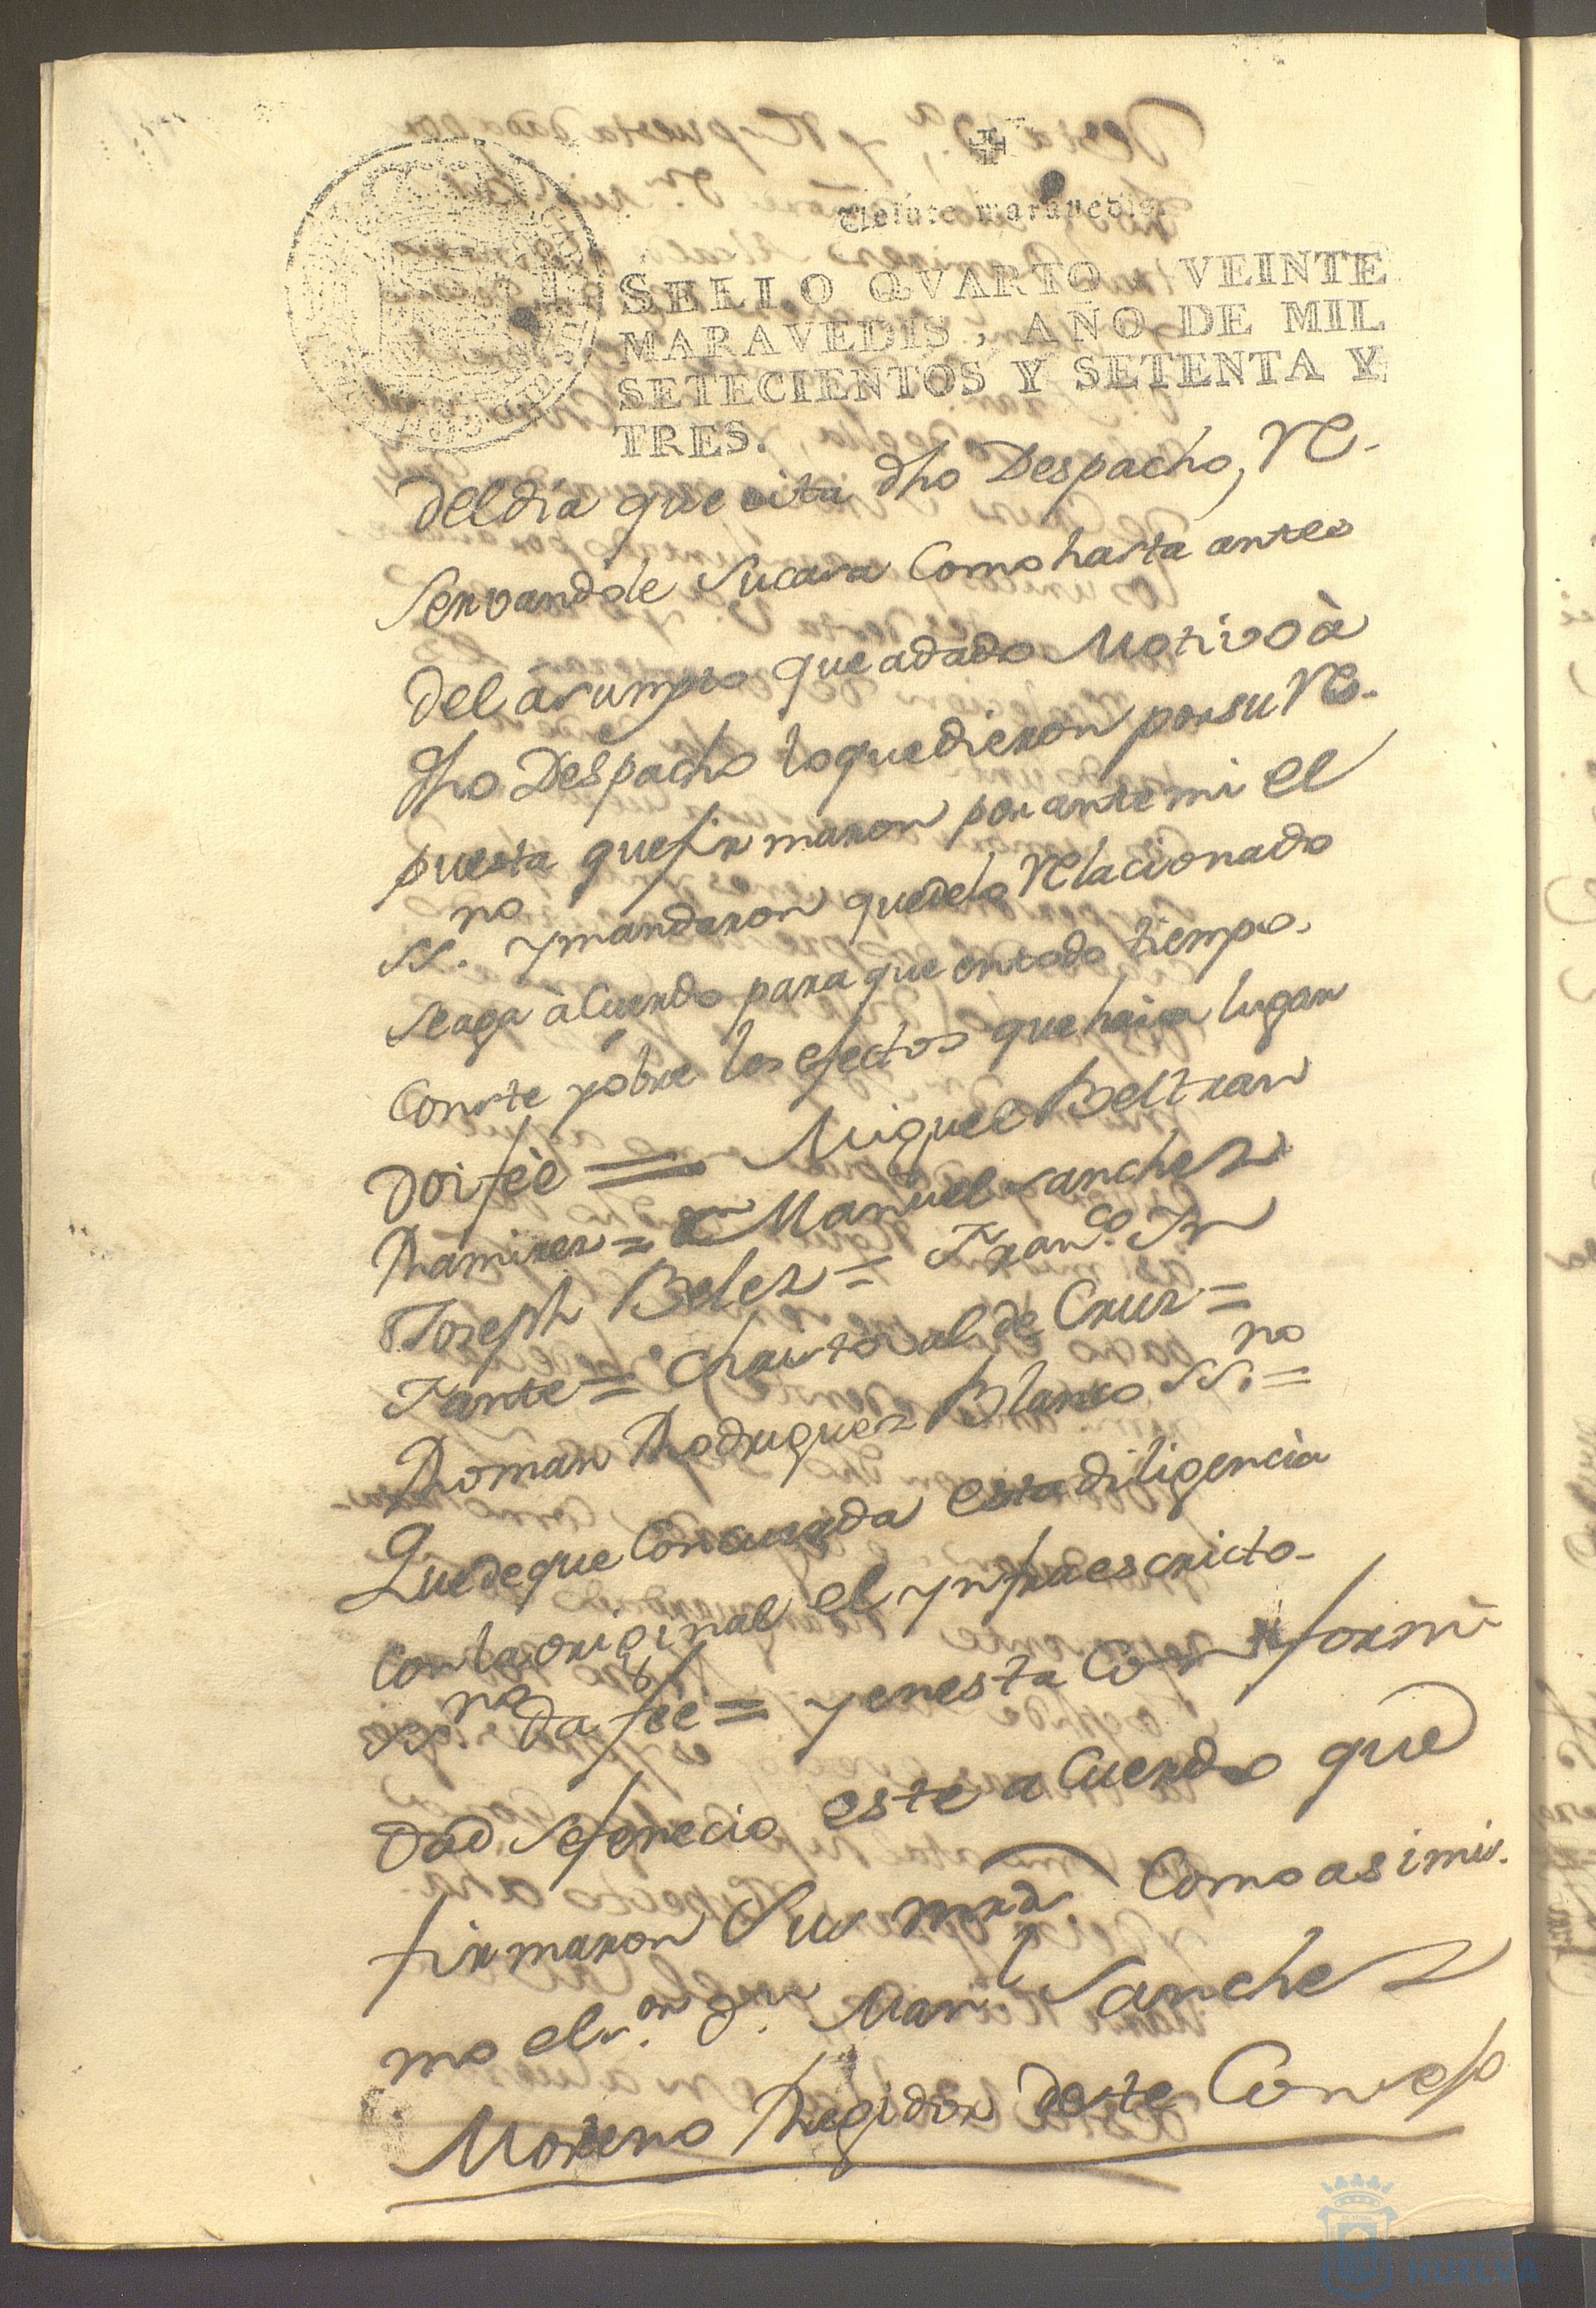 Veinte maravedis.
SELLO QVARTO, VEINTE
MARAVEDIS, AÑO DE MIL
SETECIENTOS Y SETENTA Y
TRES.
deldia que cita dho Despacho, Re-
servandole su casa Como hasta antes
del asumpto que adado Motivo à
dho Despacho loquedieron porsu Res-
puesta quefirmaron por antemi el
ss.no ymandaron quedelo Relacionado
seaga àCuerdo paraque entodo tiempo
Conste ysobre los efectos que haia lugar
doi fèe = Miguel Beltran
Ramirez = dn Manuel Sanchez
Joseph Belez = Franco. In
Fante = Christobal de Cruz =
Roman Rodriguez Blanco ss.no =
Quedeque Concuerda estadiligencia
Conlaoriginal el ynfraescricto
ss.no da fèe = yenesta Conformi
dad sefenecio este aCuerdo que
firmaron Sus mrds. Como asimis-
mo elsr. dn. Manl Sanchez
Moreno Regidor deste Concejo
HUELVA